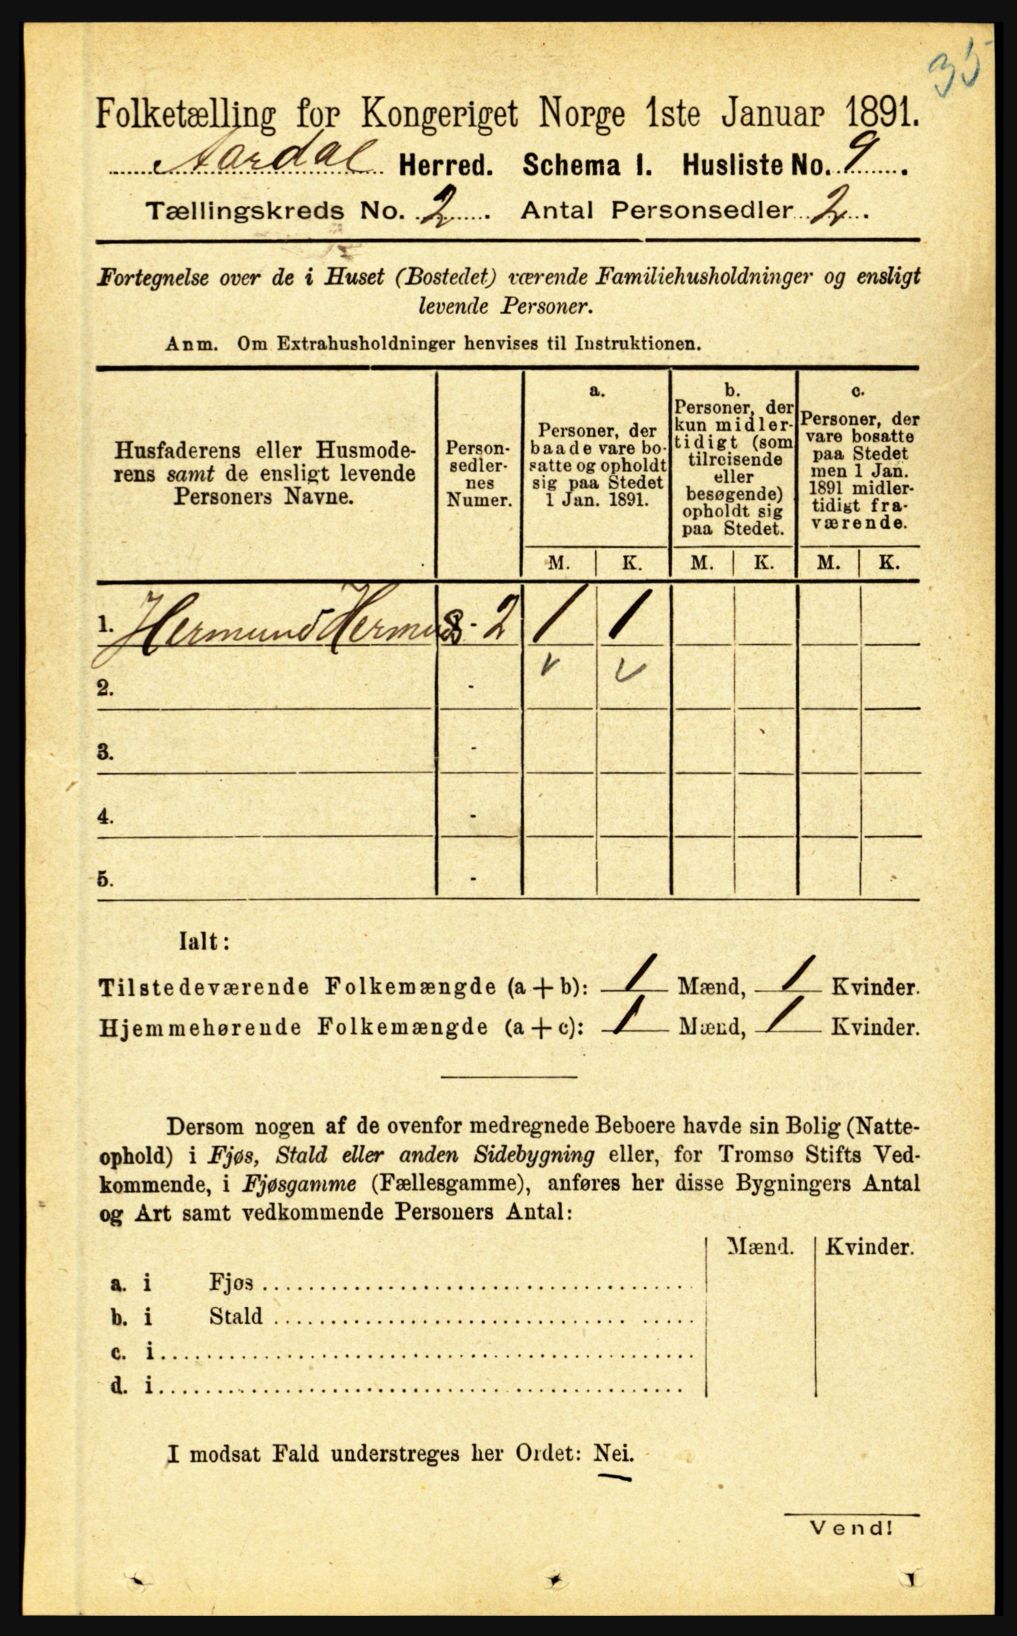 35
Folketælling for Kongeriget Norge 1ste Januar 1891.
Aardal Herred. Schema I. Husliste No. 9.
Tællingskreds No. 2. Antal Personsedler 2.
Fortegnelse over de i Huset (Bostedet) værende Familiehusholdninger og ensligt
levende Personer.
Anm. Om Extrahusholdninger henvises til Instruktionen.
Husfaderens eller Husmode-
rens samt de ensligt levende
Personers Navne.
Person-
sedler-
nes
Numer.
a.
Personer, der
baade vare bo-
satte og opholdt
sig paa Stedet
1 Jan. 1891.
b.
Personer, der
kun midler-
tidigt (som
tilreisende
eller
besøgende)
opholdt sig
paa Stedet.
c.
Personer, der
vare bosatte
paa Stedet
men 1 Jan.
1891 midler-
tidigt fra-
værende.
M. K. M. K. M. K.
1. Hermund - 2 1 1
2. -
3. -
4. -
5. -
Ialt:
Tilstedeværende Folkemængde (a+b): 1 Mænd, 1 Kvinder.
Hjemmehørende Folkemængde (a+c): 1 Mænd, 1 Kvinder.
Dersom nogen af de ovenfor medregnede Beboere havde sin Bolig (Natte-
ophold) i Fjøs, Stald eller anden Sidebygning eller, for Tromsø Stifts Ved-
kommende, i Fjøsgamme (Fællesgamme), anføres her disse Bygningers Antal
og Art samt vedkommende Personers Antal:
Mænd. Kvinder.
a. i Fjøs
b. i Stald
c. i
d. i
I modsat Fald understreges her Ordet: Nei.
Vend!